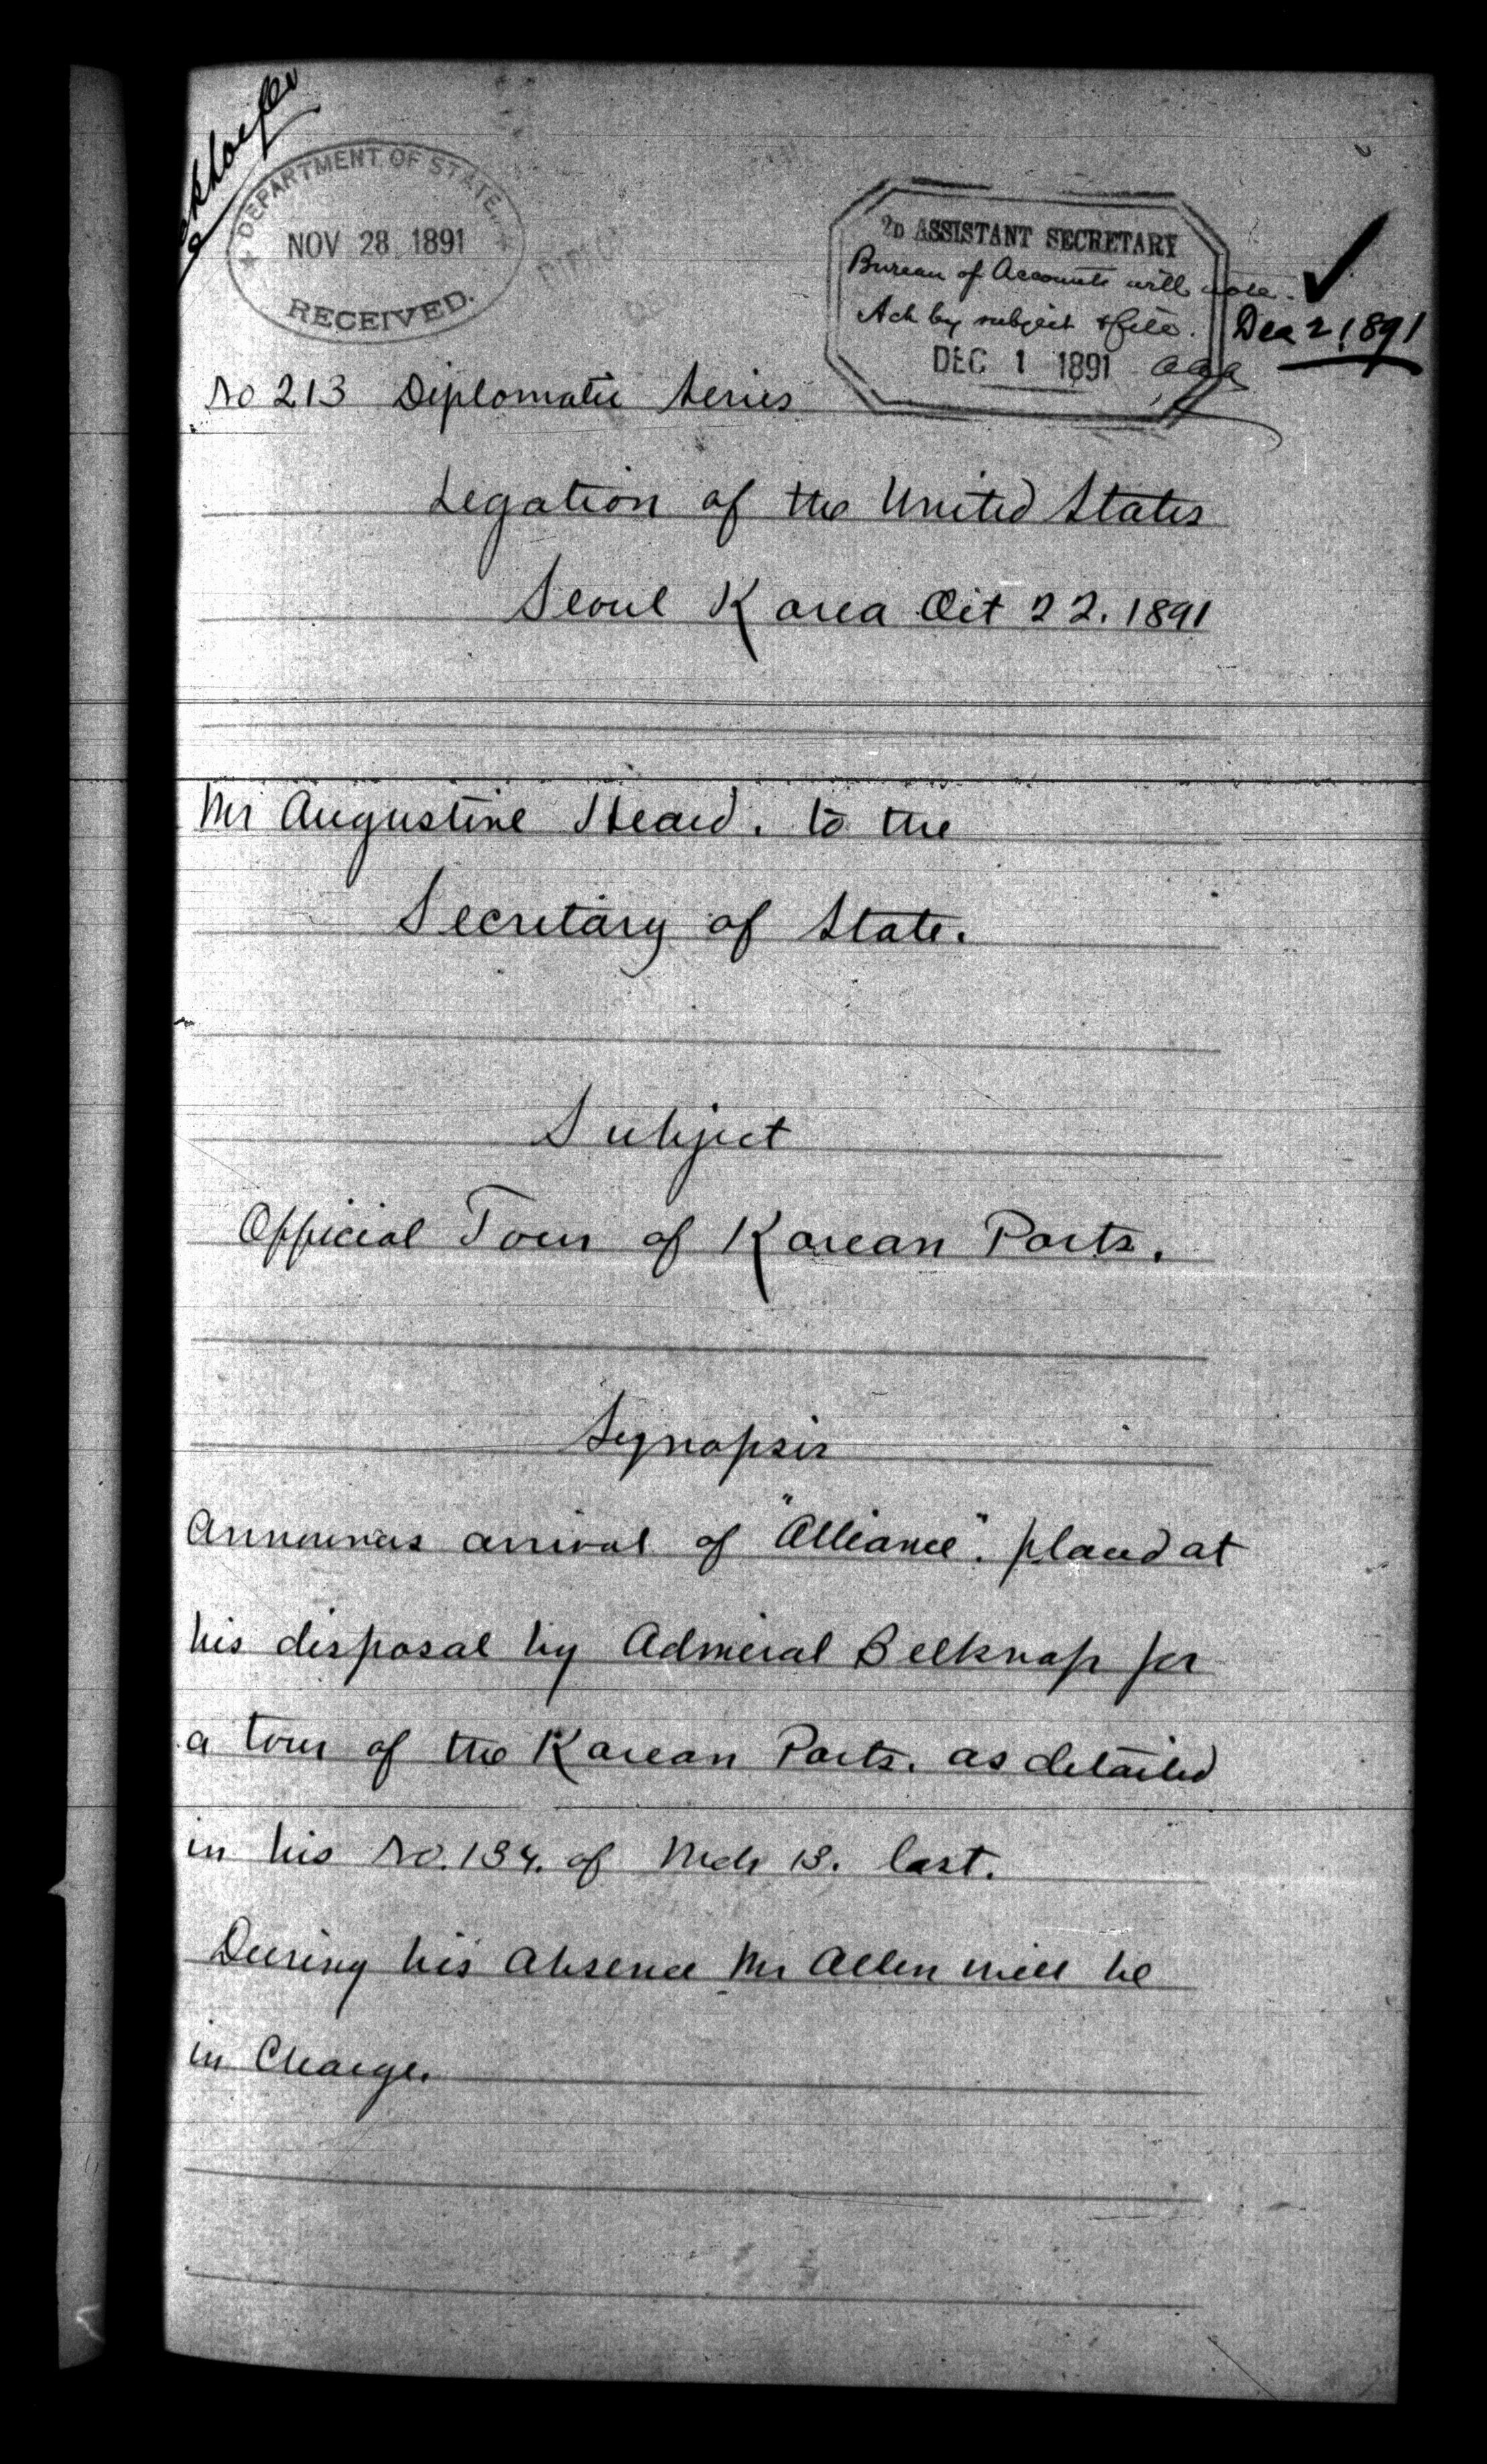 DEPARTMENT OF STATE,
NOV 28 1891
RECEIVED.
2D ASSISTANT SECRETARY
Bureau of Accounts will note.
Ack by subject & file.
DEC 1 1891 aaa
Dec 2, 1891
No 213 Diplomatic Series
Legation of the United States
Seoul Korea Oct 22. 1891
Mr Augustine Heard. to the
Secretary of State.
Subject
Official Tour of Korean Ports.
Synopsis
Announces arrival of "Alliance". placed at
his disposal by Admiral Belknap for
a tour of the Korean Ports. as detailed
in his No. 134. of Mch 13. last.
During his absence Mr Allen will be
in Charge.